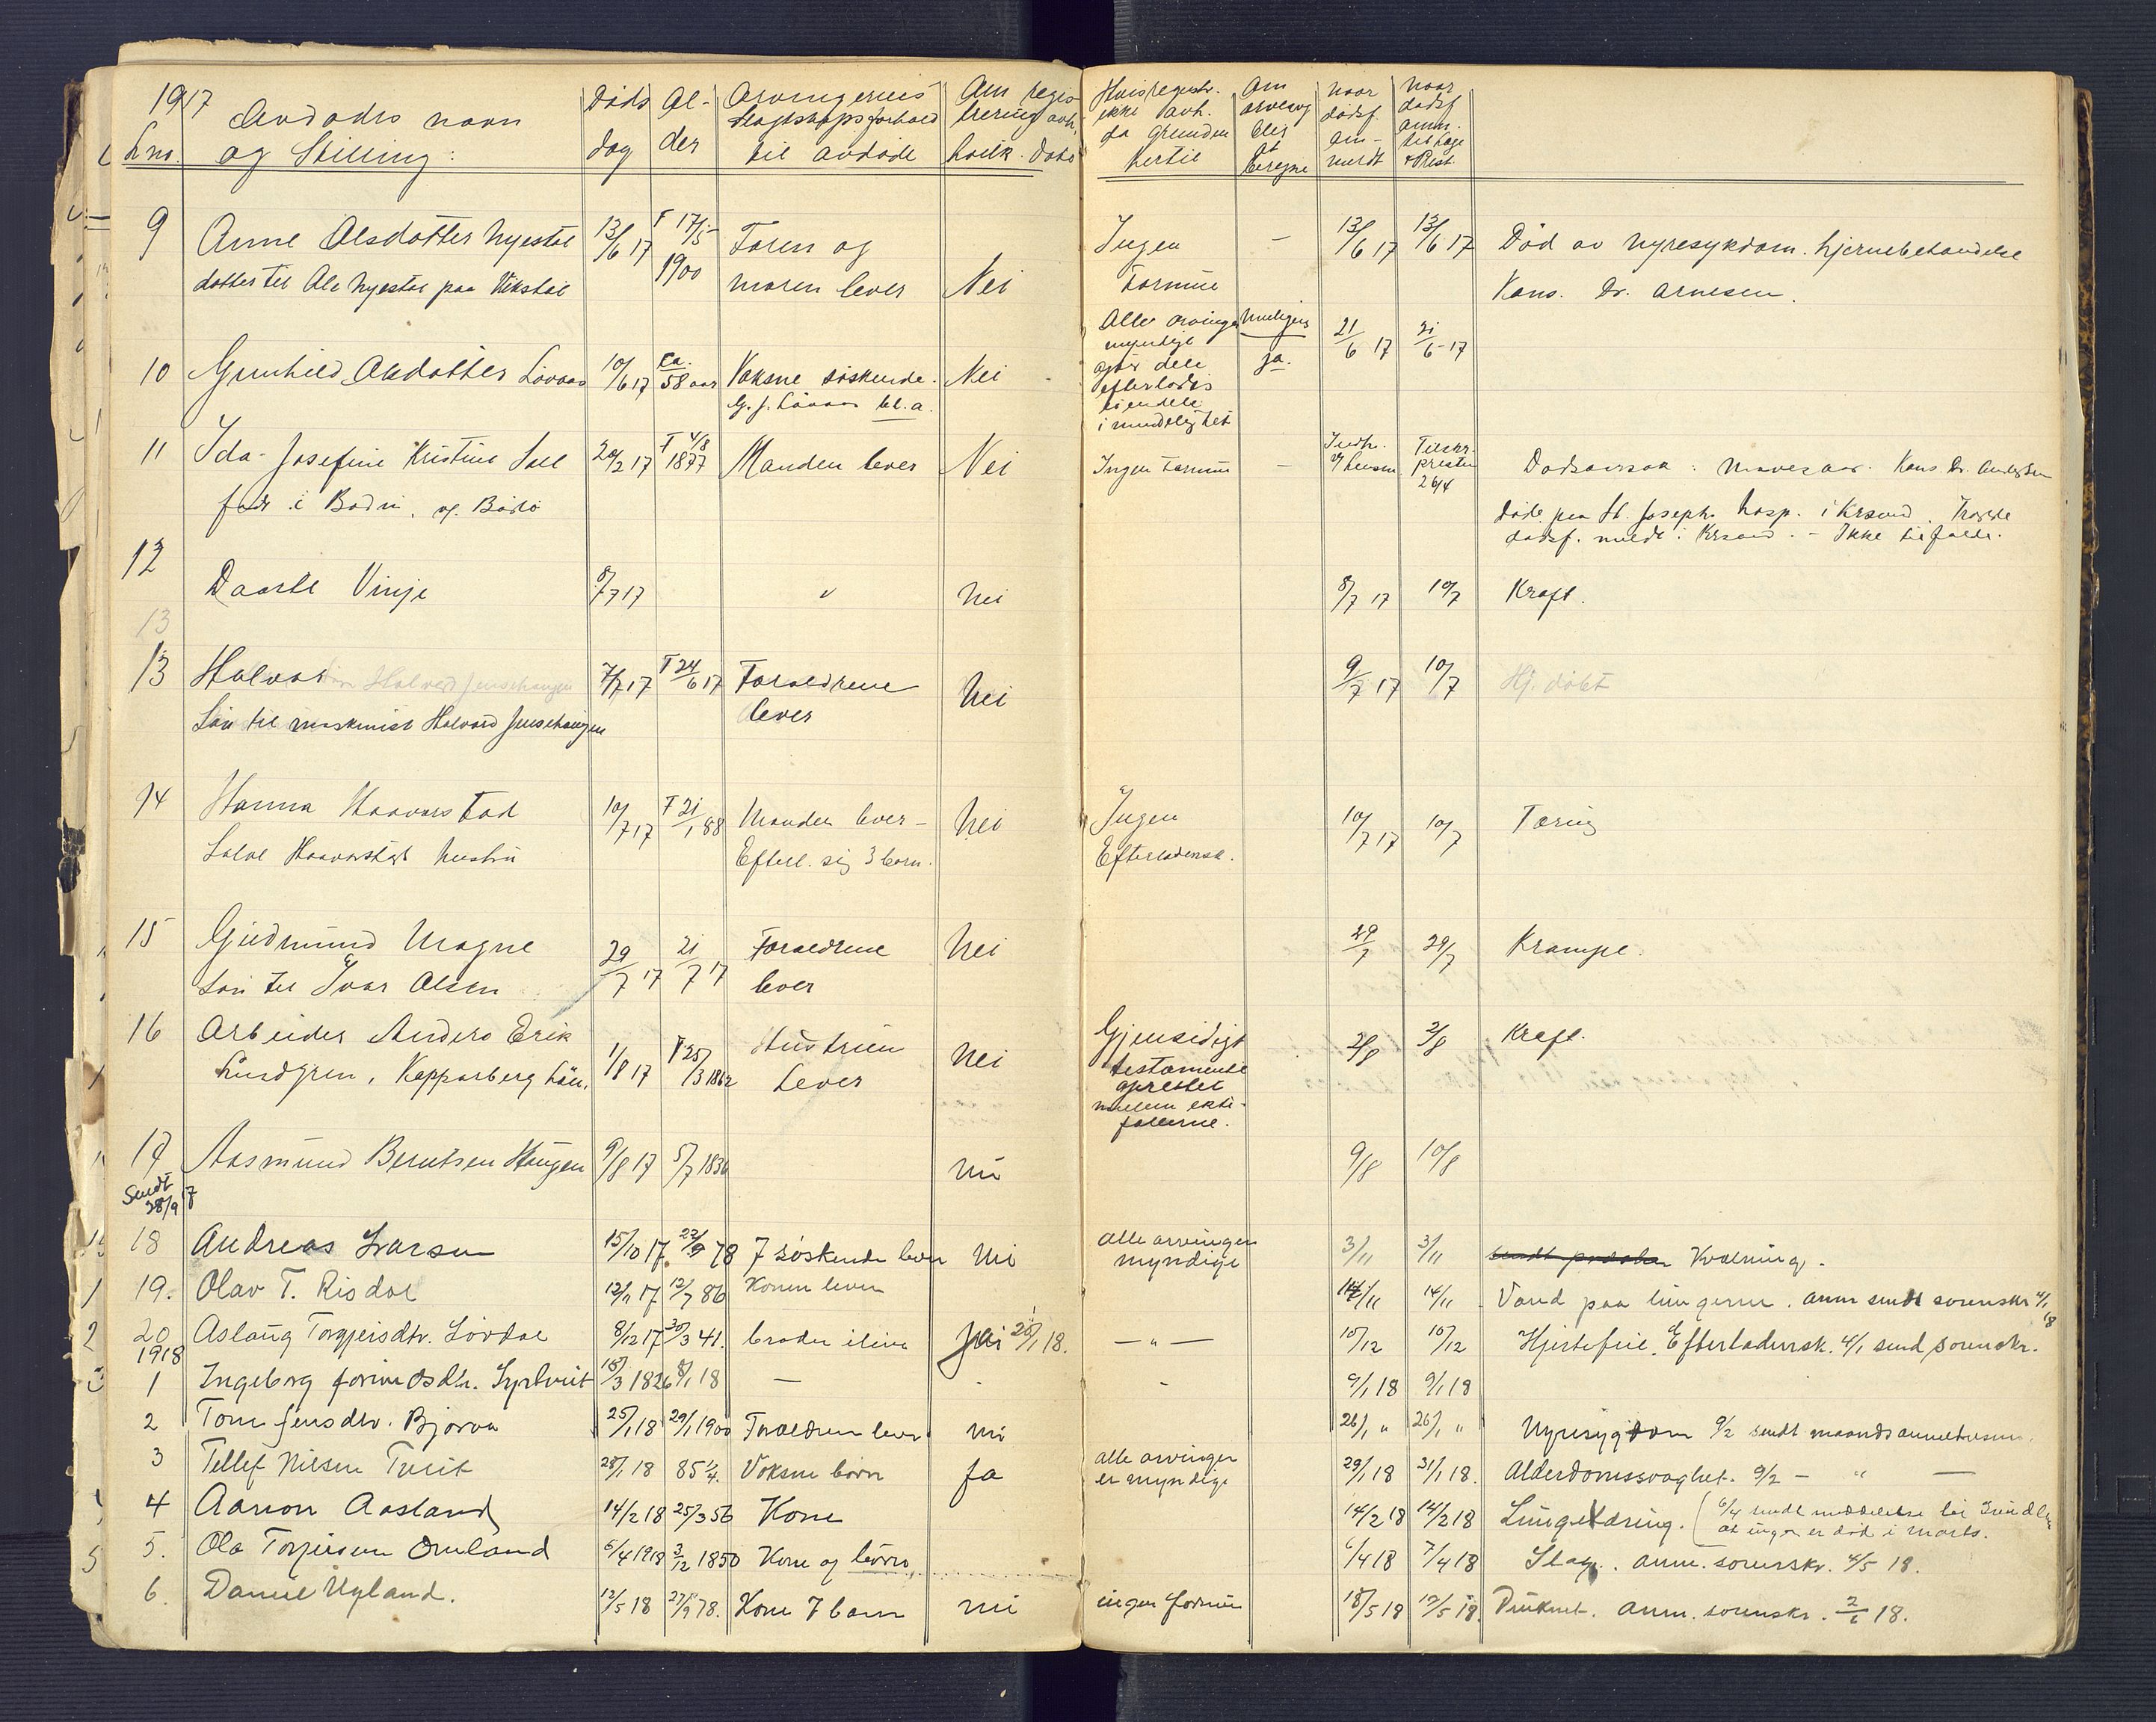 1917
Lno.
Avdødes navn
og Stilling:
Døds
dag
Al-
der
Arvingernes
slagtskapsforhold
til avdøde
Om regis-
trering avh.
hvilk. Dato
Hvis registr.
ikke avh.
da grunden
hertil
Om
arveavg
blir
at
beregne
naar
dødsf.
an-
meldt
naar
dødsf
anm.
9 Anne Olsdotter Nyestøl 13/6 17 F 17/5 1900 Faren og Ingen — 13/6 17 13/6 17 Død av nyresykdom. hjernebetændelse
datter til Ole Nyestøl paa Vikstøl moren lever Nei Formue Kons. Dr. Arnesen.
10 Gunhild Aasdotter Løvaas 10/6 17 ca. 58 aar Voksne søskende. Nei Alle arvinger myndige 21/6 17 21/6-17
G. J. Løvaas bl. a.
gjør dele
efterlodes
eiendele
i mindelighet
Muligens
ja.
11 Ida Josefine Kristine Lall 20/2 17 F 4/8 1877 Manden lever Nei Ingen Formue — Dødsaarsak: mavesaar. Kons. Dr.
født i Bodin, pr. Bodø
Døde paa St. Josephs hosp. i Krsand.
dødsf. meldt i Krsand. - Ikke
12 Daarte Vinje 8/7 17 " Nei 8/7 17 10/7 Kræft.
13
13 Halvor 7/7 17 F 24/6 17 Forældrene Nei 9/7 17 10/7 Hj. døbt
Søn til maskinist Halvard Jenshaugen lever
14 Hanna Haavarstad 10/7 17 F 21/1 88 Manden lever - Nei Ingen 10/7 17 10/7 Tæring
Salve Haavarstad hustru Efterl. sig 3 barn. Efterladensk.
15 Gudmund Magne 29/7 17 21/7 17 Forældrene Nei 29/7 29/7 Krampe.
Søn til Ivar Olsen lever
16 Arbeider Anders Erik 1/8 17 F 25/3 1862 Hustruen Nei Gjensidigt 2/8 2/8 Kræft.
Lundgren, Kopparberg Län. Lever testamente
oprettet
mellem ekte-
fællerne.
17 Aasmund Berntsen Haugen 9/8 17 5/7 1836 Nei 9/8 10/8
Sendt
28/9 17
18 Andreas Larsen 15/10 17. 22/9 78 7 søskende lever Nei alle arvinger myndige 3/11 3/11 Kvælning.
19. Olav T. Risdal 12/11 17 12/7 86 Konen lever 14/11 14/11 Vand paa lungerne. anm sendt sorenskr 4/1 18
20 Aslaug Torgjeisdtr. Løvdal 8/12 17 30/3 41. brødre ilive 25/1 18. — " — 10/12 10/12 Hjertefeil. Efterladensk. 4/1 send sorenskr.
1918
1 Ingeborg 15/3 1826 8/1 18 — - - 9/1 18 9/1 18
2 Tone Jensdtr. Bjorva 25/1 18 29/1 1900 Forældrene lever nei 26/1 " 26/1 " Nyresygdom 9/2 sendt maandsanmeldelsen.
3 Tellef Nilsen Tveit 28/1 18 85 1/4. Voksne børn ja alle arvinger er myndige 29/1 18 31/1 18. Alderdomssvaghet. 9/2 — " —
4 Aanon Aasland 14/2 18 25/3 56 Kone 14/2 18 14/2 18 Lungetæring. (6/4 sendt meddelelse
at ingen er død i Marts.
5. Ola Torjusen Omland 6/4 1918 3/12 1850 Kone og børn 6/4 18 7/4 18 Slag. anm. sorenskr. 4/5 18.
6. Daniel Ugland. 12/5 18 27/9 78. Kone 7 barn nei ingen formue 18/5 18 12/5 18. Druknet. anm. sorenskr. 2/6 18.